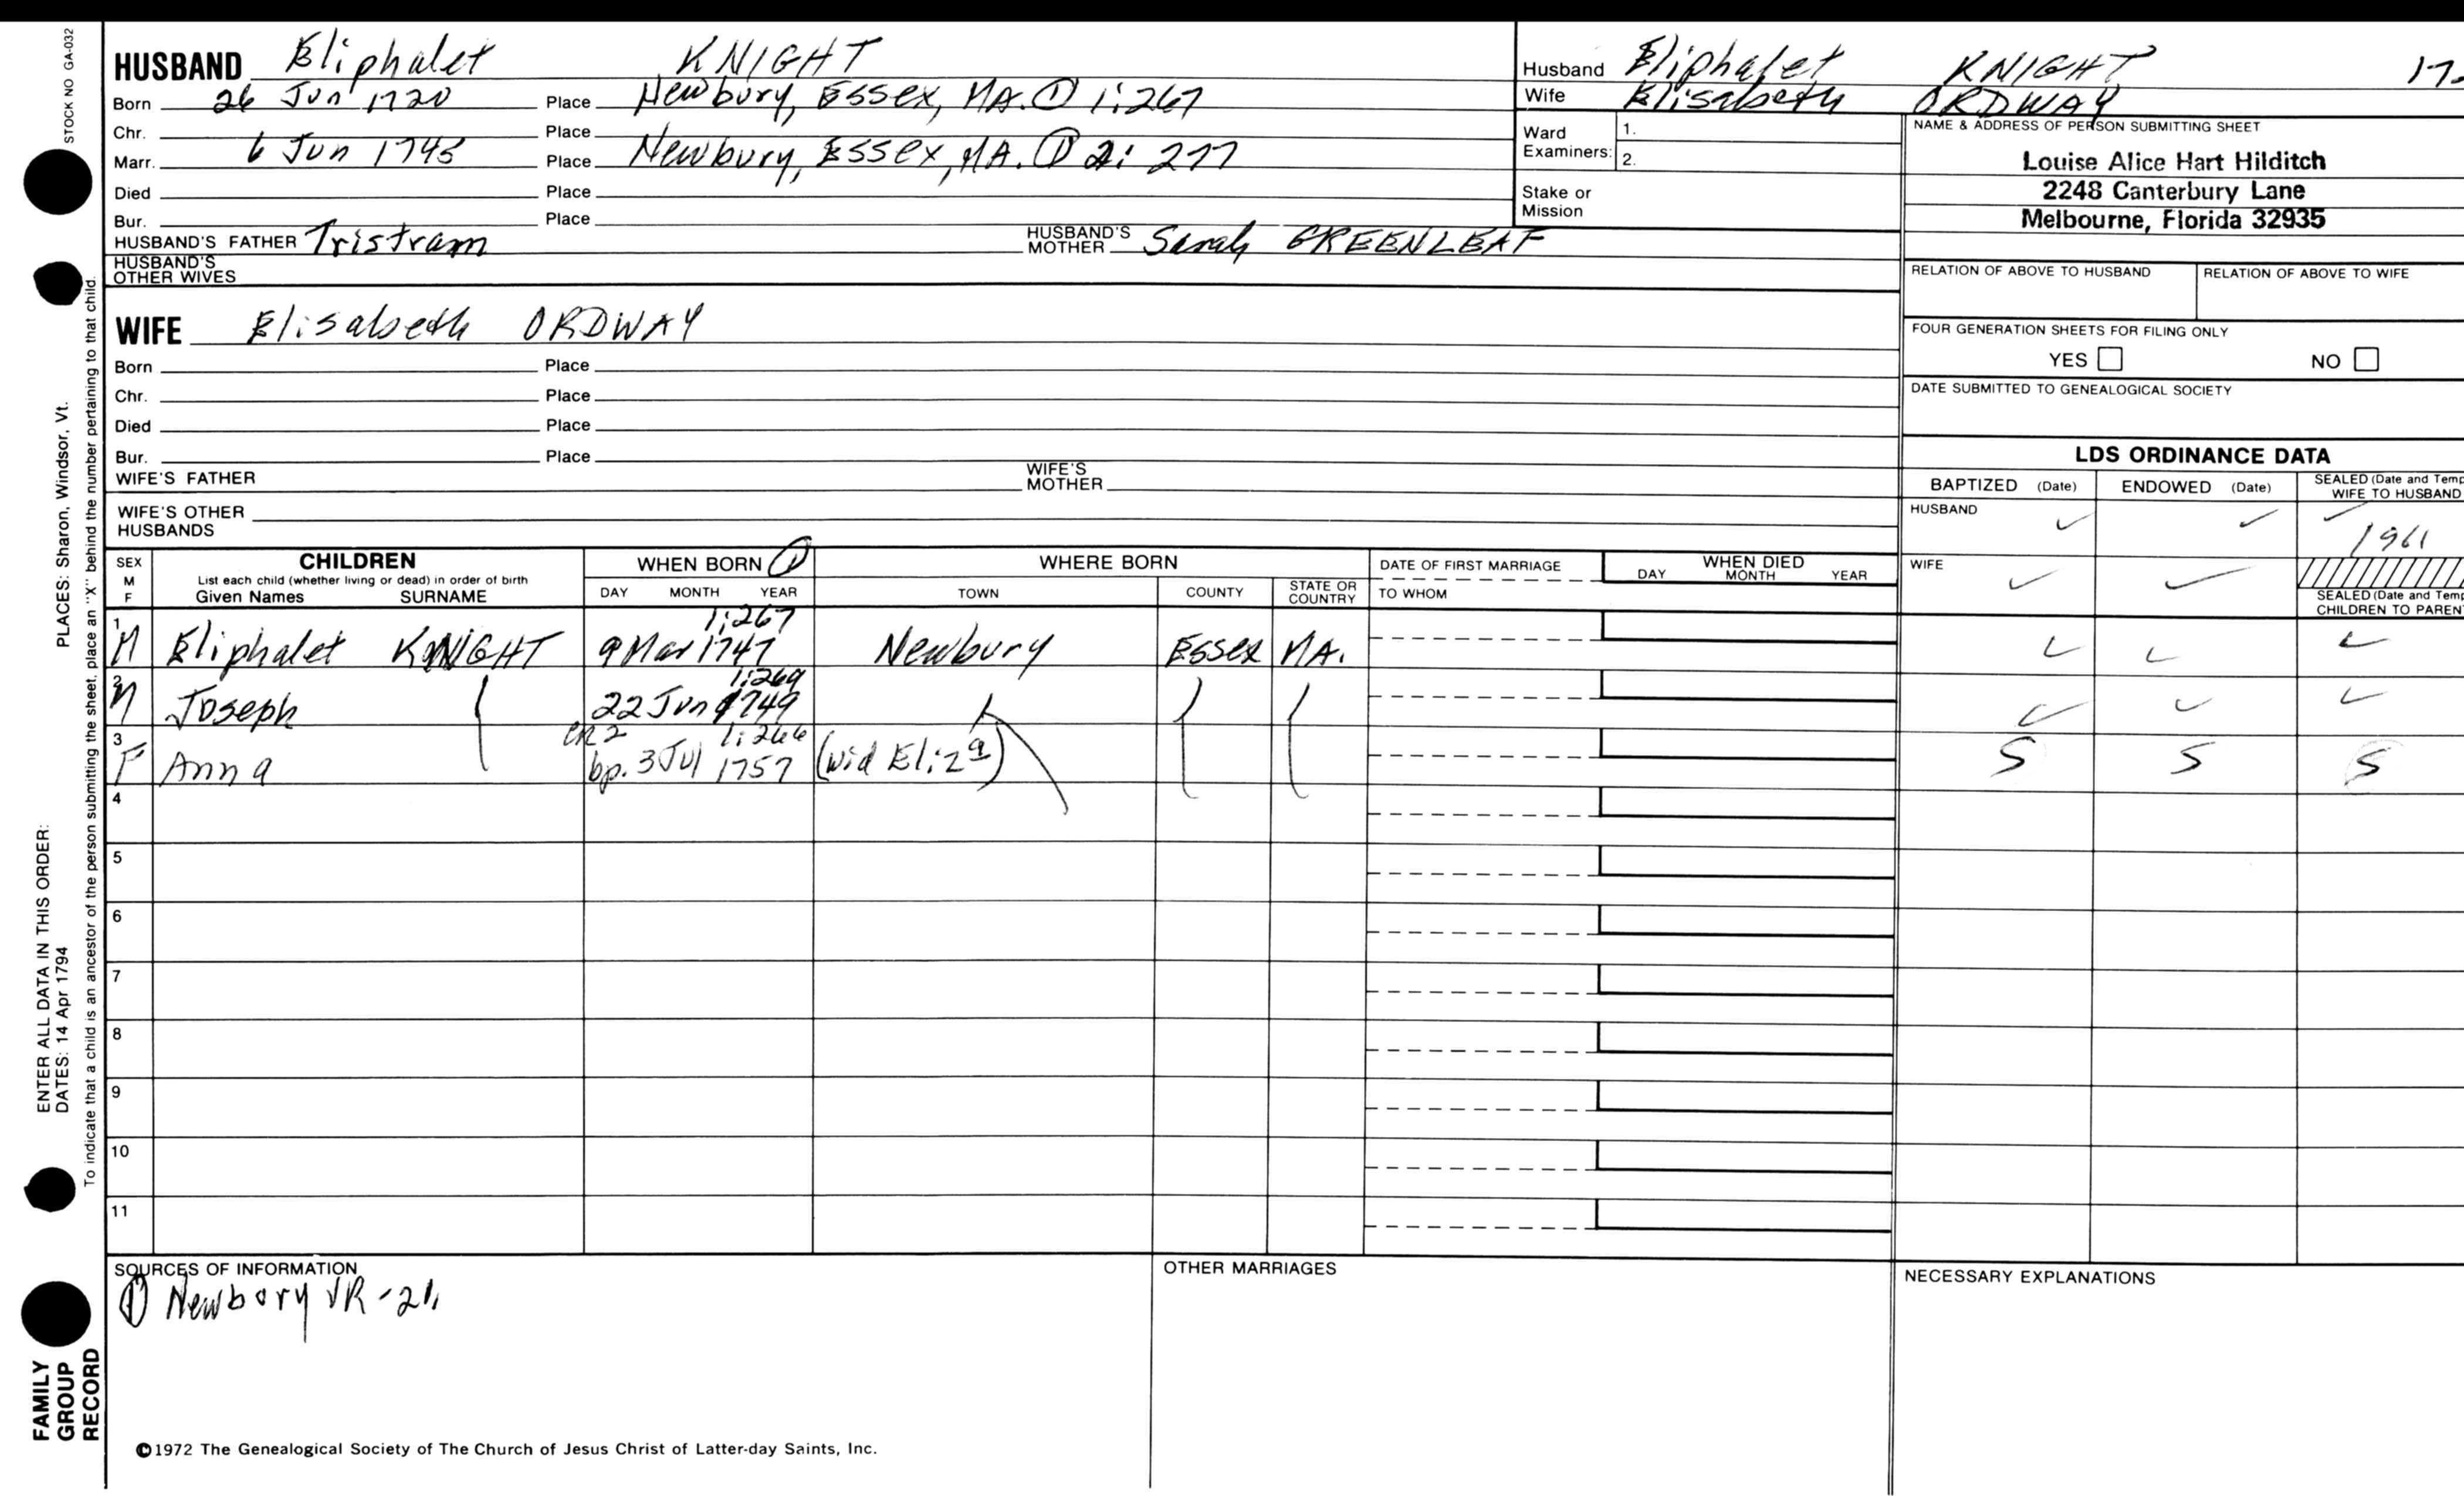 STOCK NO GA-032
PLACES: Sharon, Windsor, Vt.
ENTER ALL DATA IN THIS ORDER:
DATES: 14 Apr 1794
To indicate that a child is an ancestor of the person submitting the sheet, place an "X" behind the number pertaining to that child.
FAMILY
GROUP
RECORD
HUSBAND Eliphalet KNIGHT
Born 26 Jun 1720 Place Newbury, Essex, MA. ① 1:267
Chr. Place
Marr. 6 Jun 1745 Place Newbury, Essex, MA. ① 2: 277
Died Place
Bur. Place
HUSBAND'S FATHER Tristram HUSBAND'S MOTHER Sarah GREENLEAF
HUSBAND'S
OTHER WIVES
WIFE Elisabeth ORDWAY
Born Place
Chr. Place
Died Place
Bur. Place
WIFE'S FATHER WIFE'S MOTHER
WIFE'S OTHER
HUSBANDS
Husband Eliphalet KNIGHT
Wife Elisabeth ORDWAY
Ward
Examiners:
1.
2.
Stake or
Mission
NAME & ADDRESS OF PERSON SUBMITTING SHEET
Louise Alice Hart Hilditch
2248 Canterbury Lane
Melbourne, Florida 32935
RELATION OF ABOVE TO HUSBAND RELATION OF ABOVE TO WIFE
FOUR GENERATION SHEETS FOR FILING ONLY
YES NO
DATE SUBMITTED TO GENEALOGICAL SOCIETY
LDS ORDINANCE DATA
BAPTIZED (Date) ENDOWED (Date) SEALED (Date and Temp
WIFE TO HUSBAND
HUSBAND ✓ ✓ ✓
1961
WIFE ✓ ✓
SEALED (Date and Temp
CHILDREN TO PARENT
SEX
M
F
CHILDREN
List each child (whether living or dead) in order of birth
Given Names SURNAME
WHEN BORN ①
DAY MONTH YEAR
WHERE BORN
TOWN COUNTY STATE OR COUNTRY
DATE OF FIRST MARRIAGE
TO WHOM
WHEN DIED
DAY MONTH YEAR
1:267
1 M Eliphalet KNIGHT 9 Mar 1747 Newbury Essex MA. ✓ ✓ ✓
1:269
2 M Joseph 22 Jun 1749 ✓ ✓ ✓
CR2 1:266
3 F Anna bp. 3 Jul 1757 (wid Eliza) S S S
4
5
6
7
8
9
10
11
SOURCES OF INFORMATION
① Newbury VR
OTHER MARRIAGES
NECESSARY EXPLANATIONS
©1972 The Genealogical Society of The Church of Jesus Christ of Latter-day Saints, Inc.